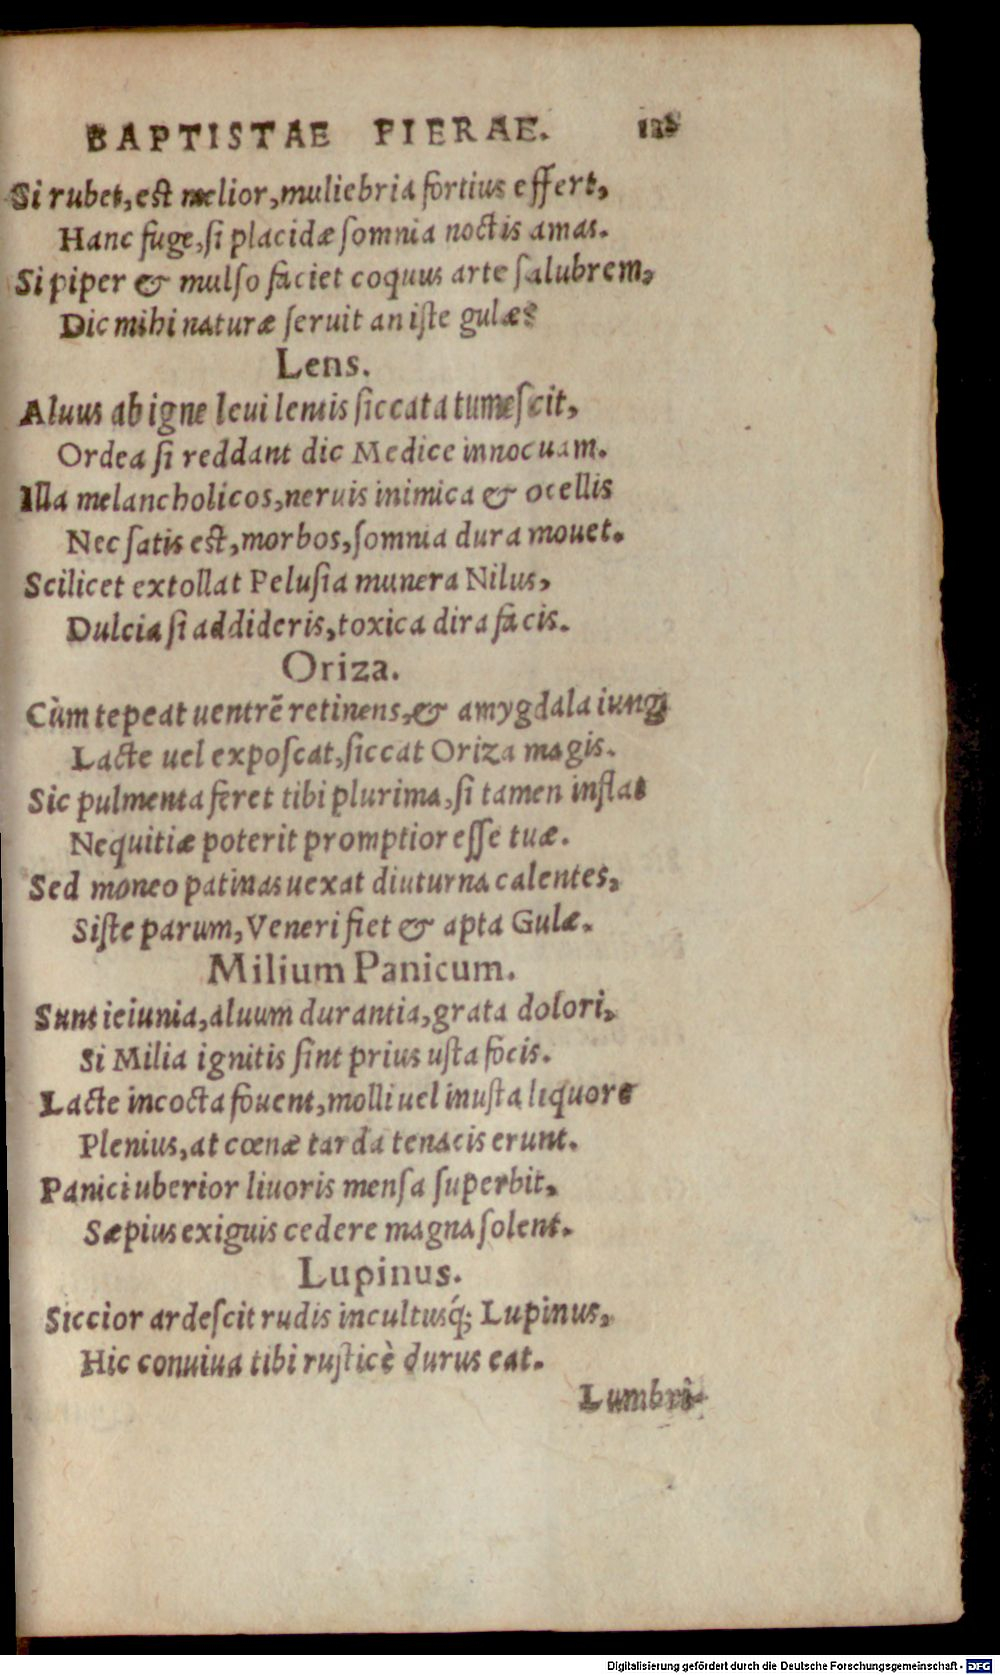 BAPTISTAE PIERAE. 125
Si rubet, est melior, muliebria fortius effert,
Hanc fuge, si placidæ somnia noctis amas.
Si piper & mulso faciet coquus arte salubrem,
Dic mihi naturæ seruit an iste gulæ?
Lens.
Aluus ab igne leui lentis siccata tumescit,
Ordea si reddant dic Medice innocuam.
Illa melancholicos, neruis inimica & ocellis
Nec satis est, morbos, somnia dura mouet.
Scilicet extollat Pelusia munera Nilus,
Dulcia si addideris, toxica dira facis.
Oriza.
Cùm tepeat uentrẽ retinens, & amygdala iungi
Lacte uel exposcat, siccat Oriza magis.
Sic pulmenta feret tibi plurima, si tamen inflat
Nequitiæ poterit promptior esse tuæ.
Sed moneo patinas uexat diuturna calentes,
Siste parum, Veneri fiet & apta Gulæ.
Milium Panicum.
Sunt ieiunia, aluum durantia, grata dolori,
Si Milia ignitis sint prius usta focis.
Lacte incocta fouent, molli uel inusta liquore
Plenius, at cœnæ tarda tenacis erunt.
Panici uberior liuoris mensa superbit,
Sæpius exiguis cedere magna solent.
Lupinus.
Siccior ardescit rudis incultusq́; Lupinus,
Hic conuiua tibi rusticè durus eat.
Lumbri-
Digitalisierung gefördert durch die Deutsche Forschungsgemeinschaft - DFG